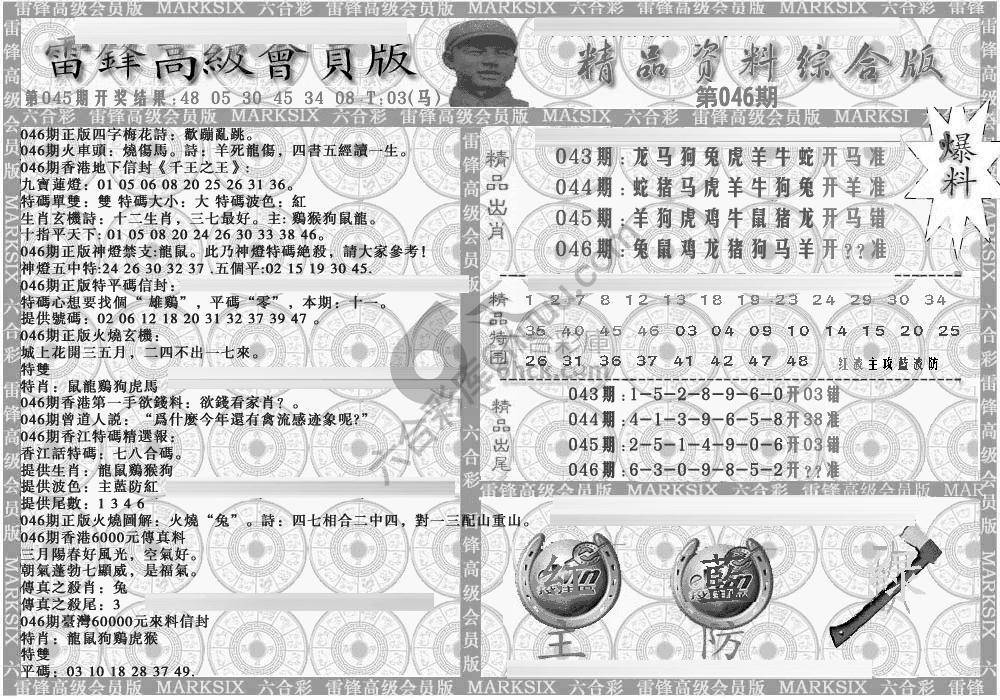 雷锋高级会员版 MARKSIX 六合彩 雷锋高级会员版 MARKSIX 六合彩 雷锋高级会员版 MARKSIX 六合彩 雷锋高级会员版
雷鋒高級會員版
精品资料综合版
第045期开奖结果:48 05 30 45 34 08-T:03(马)
第046期
爆料
046期正版四字梅花詩：歡蹦亂跳。
046期火車頭：燒傷馬。詩：羊死龍傷，四書五經讀一生。
046期香港地下信封《千王之王》：
九寶蓮燈：01 05 06 08 20 25 26 31 36。
特碼單雙：雙 特碼大小：大 特碼波色：紅
生肖玄機詩：十二生肖，三七最好。主：鷄猴狗鼠龍。
十指平天下：01 05 08 20 24 26 30 33 38 46。
046期正版神燈禁支:龍鼠。此乃神燈特碼絶殺，請大家參考！
神燈五中特:24 26 30 32 37 .五個平:02 15 19 30 45.
046期正版特平碼信封：
特碼心想要找個“雄鷄”，平碼“零”，本期：十一。
提供號碼：02 06 12 18 20 31 32 37 39 47 。
046期正版火燒玄機：
城上花開三五月，二四不出一七來。
特雙
特肖：鼠龍鷄狗虎馬
046期香港第一手欲錢料：欲錢看家肖？。
046期曾道人説：“爲什麼今年還有禽流感迹象呢?”
046期香江特碼精選報：
香江話特碼：七八合碼。
提供生肖：龍鼠鷄猴狗
提供波色：主藍防紅
提供尾數：1 3 4 6
046期正版火燒圖解：火燒“兔”。詩：四七相合二中四，對一三配山重山。
046期香港6000元傳真料
三月陽春好風光，空氣好。
朝氣蓬勃七顯威，是福氣。
傳真之殺肖：兔
傳真之殺尾：3
046期臺灣60000元來料信封
特肖：龍鼠狗鷄虎猴
特雙
平碼：03 10 18 28 37 49.
精品出肖
043期:龙马狗兔虎羊牛蛇开马准
044期:蛇猪马虎羊牛狗兔开羊准
045期:羊狗虎鸡牛鼠猪龙开马错
046期:兔鼠鸡龙猪狗马羊开??准
精品特围
1 2 7 8 12 13 18 19 23 24 29 30 34
35 40 45 46 03 04 09 10 14 15 20 25
26 31 36 37 41 42 47 48 红波主攻蓝波防
精品出尾
043期:1-5-2-8-9-6-0开03错
044期:4-1-3-9-6-5-8开38准
045期:2-5-1-4-9-0-6开03错
046期:6-3-0-9-8-5-2开??准
主
防
雷锋高级会员版 MARKSIX 六合彩 雷锋高级会员版 MARKSIX 六合彩 雷锋高级会员版 MARKSIX 六合彩 雷锋高级会员版